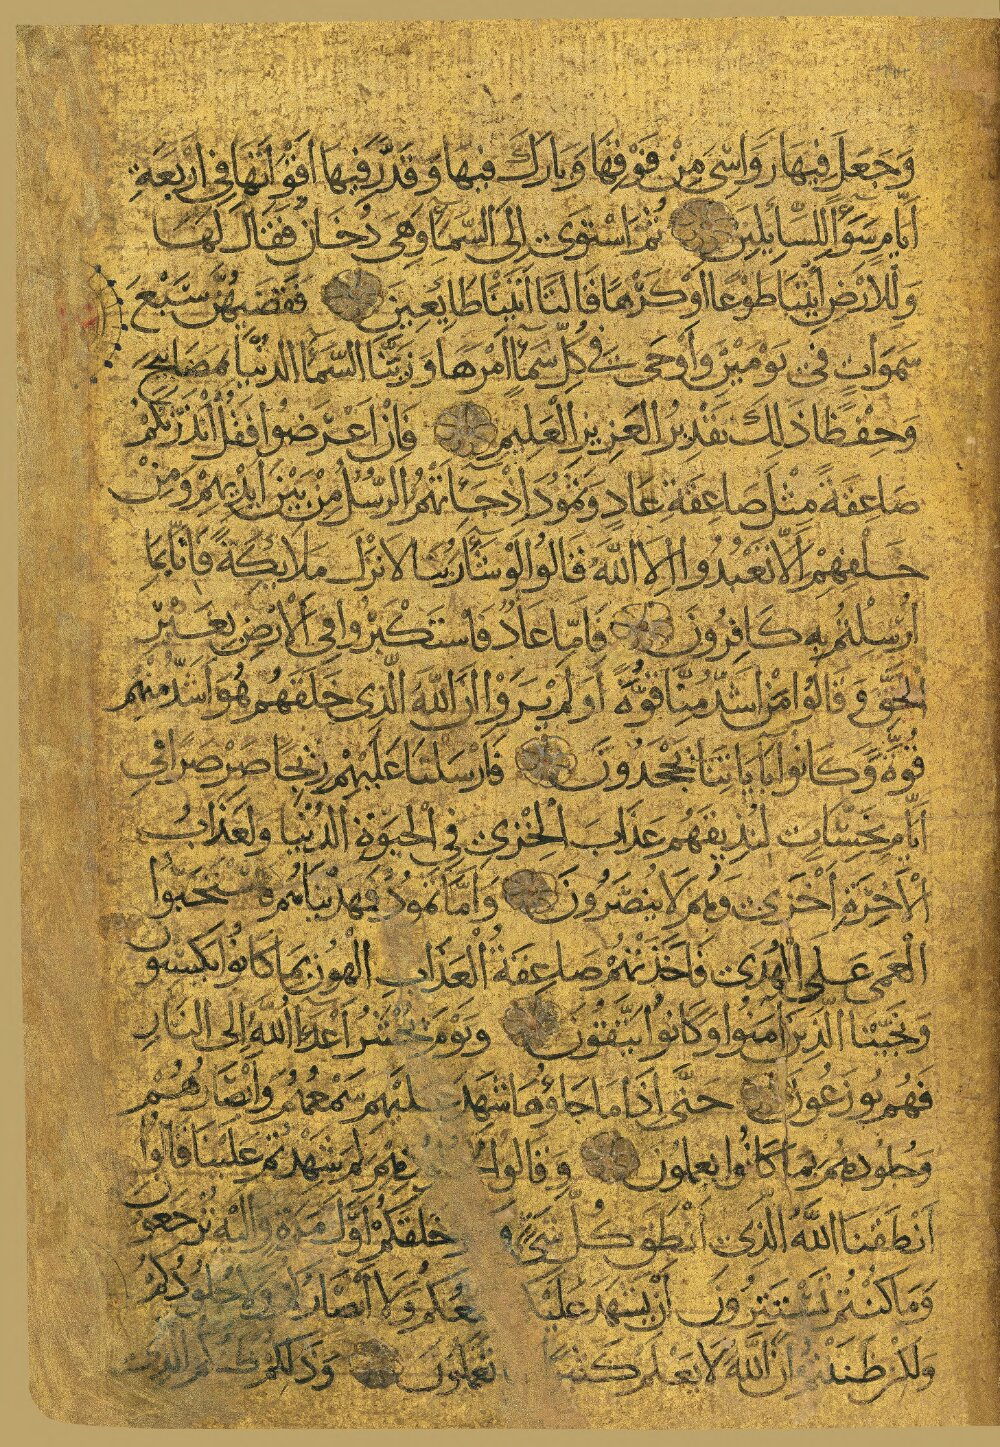 وَجَعَلَ فِيهَا رَوَاسِيَ مِنْ فَوْقِهَا وَبَارَكَ فِيهَا وَقَدَّرَ فِيهَا أَقْوَاتَهَا فِي أَرْبَعَةِ
أَيَّامٍ سَوَاءً لِلسَّائِلِينَ ثُمَّ اسْتَوَى إِلَى السَّمَاءِ وَهِيَ دُخَانٌ فَقَالَ لَهَا
وَلِلْأَرْضِ ائْتِيَا طَوْعًا أَوْ كَرْهًا قَالَتَا أَتَيْنَا طَائِعِينَ فَقَضَيهُنَّ سَبْعَ
سَمَوَاتٍ فِي يَوْمَيْنِ وَأَوْحَى فِي كُلِّ سَمَاءٍ أَمْرَهَا وَزَيَّنَّا السَّمَاءَ الدُّنْيَا بِمَصَابِيحَ
وَحِفْظًا ذَلِكَ تَقْدِيرُ الْعَزِيزِ الْعَلِيمِ فَإِنْ أَعْرَضُوا فَقُلْ أَنْذَرْتُكُمْ
صَاعِقَةً مِثْلَ صَاعِقَةِ عَادٍ وَثَمُودَ إِذْ جَاءَتْهُمُ الرُّسُلُ مِنْ بَيْنِ أَيْدِيهِمْ وَمِنْ
خَلْفِهِمْ أَلَّا تَعْبُدُوا إِلَّا اللَّهَ قَالُوا لَوْ شَاءَ رَبُّنَا لَأَنْزَلَ مَلَائِكَةً فَإِنَّا بِمَا
أُرْسِلْتُمْ بِهِ كَافِرُونَ فَأَمَّا عَادٌ فَاسْتَكْبَرُوا فِي الْأَرْضِ بِغَيْرِ
الْحَقِّ وَقَالُوا مَنْ أَشَدُّ مِنَّا قُوَّةً أَوَلَمْ يَرَوْا أَنَّ اللَّهَ الَّذِي خَلَقَهُمْ هُوَ أَشَدُّ مِنْهُمْ
قُوَّةً وَكَانُوا بِآيَاتِنَا يَجْحَدُونَ فَأَرْسَلْنَا عَلَيْهِمْ رِيحًا صَرْصَرًا فِي
أَيَّامٍ نَحِسَاتٍ لِنُذِيقَهُمْ عَذَابَ الْخِزْيِ فِي الْحَيَوةِ الدُّنْيَا وَلَعَذَابُ
الْآخِرَةِ أَخْزَى وَهُمْ لَا يُنْصَرُونَ وَأَمَّا ثَمُودُ فَهَدَيْنَاهُمْ فَاسْتَحَبُّوا
الْعَمَى عَلَى الْهُدَى فَأَخَذَتْهُمْ صَاعِقَةُ الْعَذَابِ الْهُونِ بِمَا كَانُوا يَكْسِبُونَ
وَنَجَّيْنَا الَّذِينَ آمَنُوا وَكَانُوا يَتَّقُونَ وَيَوْمَ يُحْشَرُ أَعْدَاءُ اللَّهِ إِلَى النَّارِ
فَهُمْ يُوزَعُونَ حَتَّى إِذَا مَا جَاؤُهَا شَهِدَ عَلَيْهِمْ سَمْعُهُمْ وَأَبْصَارُهُمْ
وَجُلُودُهُمْ بِمَا كَانُوا يَعْمَلُونَ وَقَالُوا لِمَ شَهِدْتُمْ عَلَيْنَا قَالُوا
أَنْطَقَنَا اللَّهُ الَّذِي أَنْطَقَ كُلَّ شَيْءٍ خَلَقَكُمْ أَوَّلَ مَرَّةٍ وَإِلَيْهِ تُرْجَعُونَ
وَمَا كُنْتُمْ تَسْتَتِرُونَ أَنْ يَشْهَدَ عَلَيْكُمْ وَلَا أَبْصَارُكُمْ وَلَا جُلُودُكُمْ
وَلَكِنْ ظَنَنْتُمْ أَنَّ اللَّهَ لَا يَعْلَمُ كَثِيرًا تَعْمَلُونَ وَذَلِكُمْ ظَنُّكُمُ الَّذِي